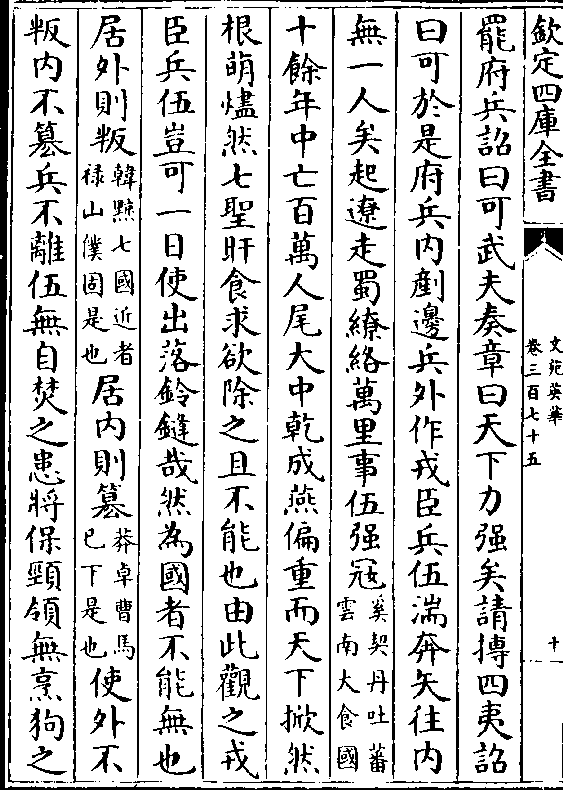 欽定四庫全書
文苑英華
卷三百七十五
十
罷府兵詔曰可武夫奏章曰天下力强矣請摶四夷詔
曰可於是府兵内剷邊兵外作戎臣兵伍湍奔矢徃内
無一人矣起遼走蜀繚絡萬里事伍强宼奚契丹吐蕃
雲南大食國
十餘年中亡百萬人尾大中乾成燕偏重而天下掀然
根萌燼然七聖旰食求欲除之且不能也由此觀之戎
臣兵伍豈可一日使出落鈐鍵哉然為國者不能無也
居外則叛韓黥七國近者
禄山僕固是也居内則簒莽卓曹馬
已下是也使外不
叛内不簒兵不離伍無自焚之患將保頸領無烹狗之